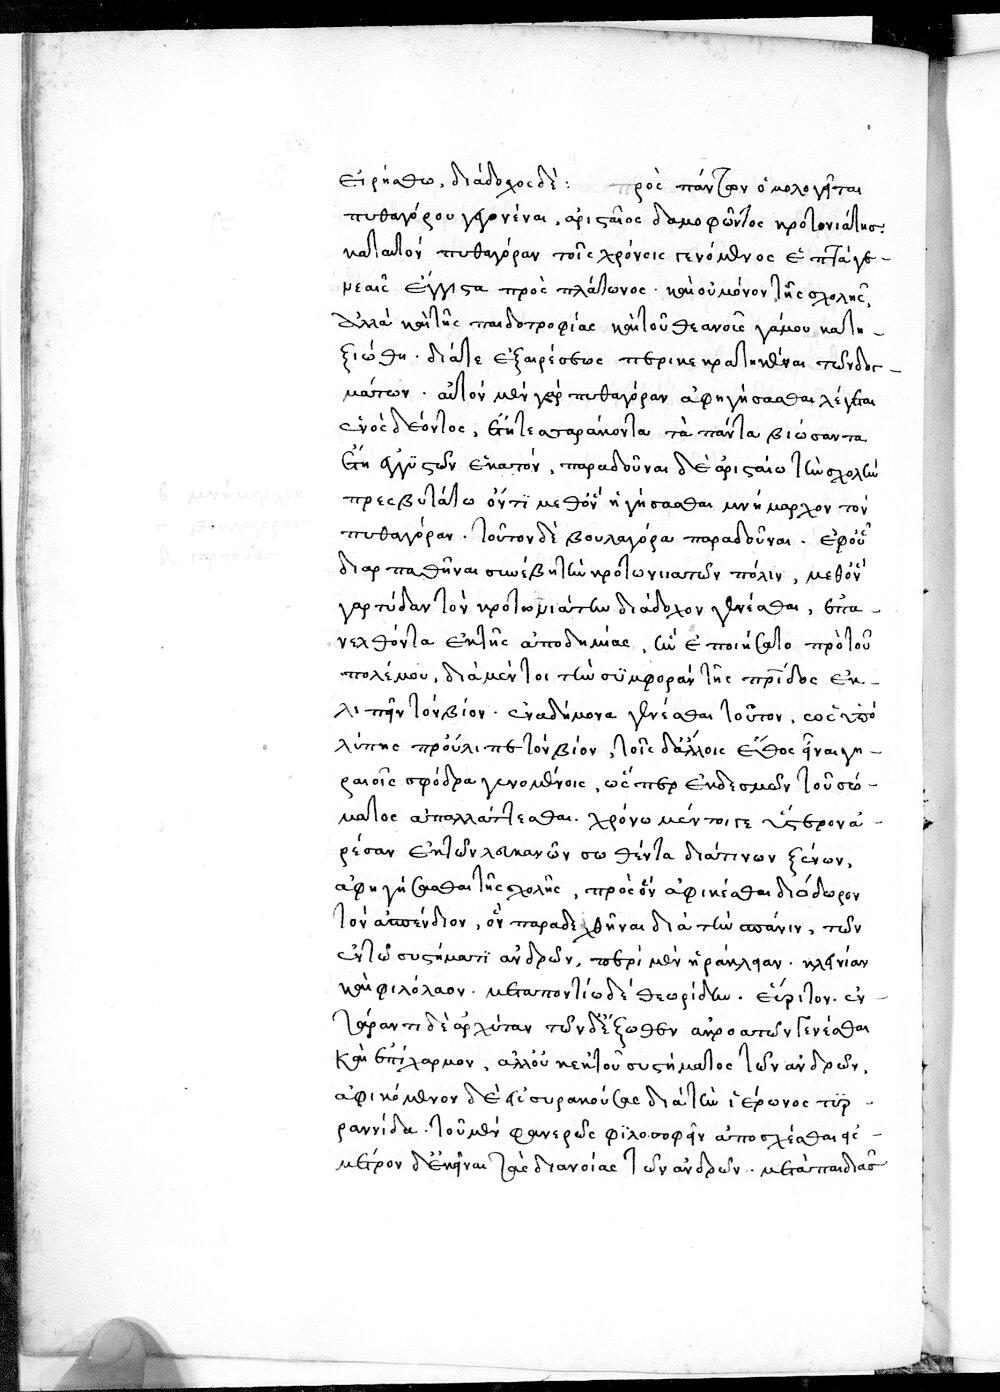 εἰρήσθω. διάδοχος δέ: πρὸς πάντων ὁμολογεῖται
πυθαγόρου γεγονέναι, ἀρισταῖος δαμοφῶντος κροτωνιάτης.
κατ αὐτὸν πυθαγόραν τοῖς χρόνοις γενόμενος ἑπτὰ γε-
νεαῖς ἔγγιστα πρὸ πλάτωνος. καὶ οὐ μόνον τῆς σχολῆς,
ἀλλὰ καὶ τῆς παιδοτροφίας καὶ τοῦ θεανοῦς γάμου κατη-
ξιώθη. διά τε ἐξαιρέτως περικεκρατηκέναι τῶν δογ-
μάτων. αὐτὸν μὲν γὰρ πυθαγόραν ἀφηγήσασθαι λέγεται
ἑνὸς δέοντος, ἔτη τεσσαράκοντα τὰ πάντα βιώσαντα
ἔτη ἐγγὺς τῶν ἑκατόν, παραδοῦναι δὲ ἀρισταίω τὴν σχολὴν
πρεσβυτάτω ὄντϊ μεθ ὃν ἡγήσασθαι μνήμαρχον τὸν
πυθαγόραν. τοῦτον δὲ βουλαγόρα παραδοῦναι. ἐφ οὗ
διαρπασθῆναι συνέβη τὴν κροτωνιατῶν πόλιν, μεθ ὃν
γαρτύδαν τὸν κροτωνιάτην διάδοχον γενέσθαι, ἐπα-
νελθόντα ἐκ τῆς ἀποδημίας, ἣν ἐποιήσατο πρὸ τοῦ
πολέμου, διὰ μέντοι τὴν συμφορὰν τῆς πρίδος ἐκ-
λιπεῖν τὸν βίον. ἐναδήμονα γενέσθαι τοῦτον, ὡς ὑπὸ
λύπης προύλιπε τὸν βίον, τοῖς δ ἄλλοις ἔθος εἶναι γη-
ραιοῖς σφόδρα γενομένοις, ὥσπερ ἐκ δεσμῶν τοῦ σώ-
ματος ἀπαλλάττεσθαι. χρόνω μέντοι γε ὕστερον ἀ-
ρέσαν ἐκ τῶν λευκανῶν σωθέντα διά τινων ξένων,
ἀφηγήσασθαι τῆς σχολῆς, πρὸς ὃν ἀφικέσθαι διόδωρον
τὸν ἀσπένδιον, ὃν παραδεχθῆναι διὰ τὴν σπάνιν, τῶν
ἐν τῶ συστήματϊ ἀνδρῶν, περὶ μὲν ἡράκλειαν. κλεινίαν
καὶ φιλόλαον. μεταποντίω δὲ θεωρίδην. εὔριτον. ἐν
τάραντι δὲ ἀρχύταν τῶν δ ἔξωθεν ἀκροατῶν γενέσθαι
καὶ ἐπίχαρμον, ἀλλ οὐκ ἐκ τοῦ συστήματος τῶν ἀνδρῶν,
ἀφικόμενον δὲ εἰς συρακούσας διὰ τὴν ἱέρωνος τϋρ-
ραννίδα. τοῦ μὲν φανερῶς φιλοσοφεῖν ἀποσχέσθαι εἰς
μέτρον δ ἐνεῖναι τὰς διανοίας τῶν ἀνδρῶν. μετὰ παιδιᾶς
μνήμαρχον
βουλαγορας